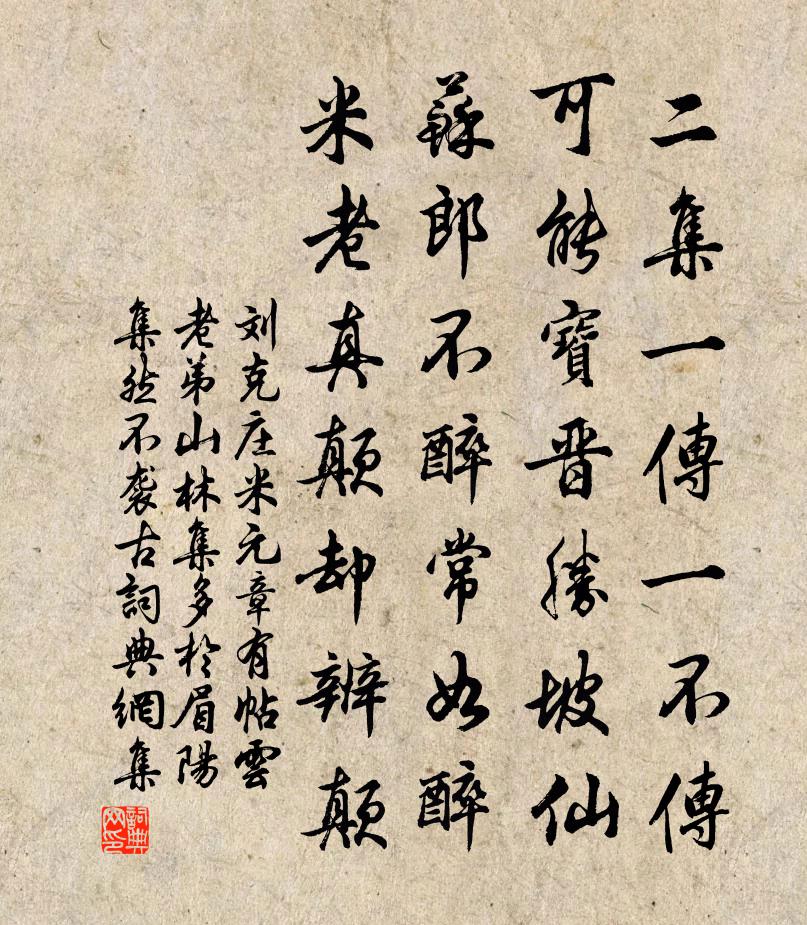 二集一傳一不傳
可能寶晉勝坡仙
蘇郎不醉常如醉
米老真顛却辨顛
刘克庄米元章有帖雲
老弟山林集多於眉陽
集然不袭古詞典網集
詞典网印